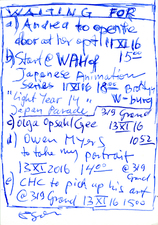 WAITING FOR
a) Andrea to operate
door at for opt 11 XI 16
1500
b) Start @ WAH of
Japanese Animation
Series 11 XI 16 1800
"Light Year 14" W-burg
Japan Parade 319 Grand
c) Olga Opsahl Gee 13 XI 16
d) Owen Myers 1052
to take my portrait
13 XI 2016 1400 @ 319
Grand
e) CHC to pick up his art
@ 319 Grand 13 XI 16 1500